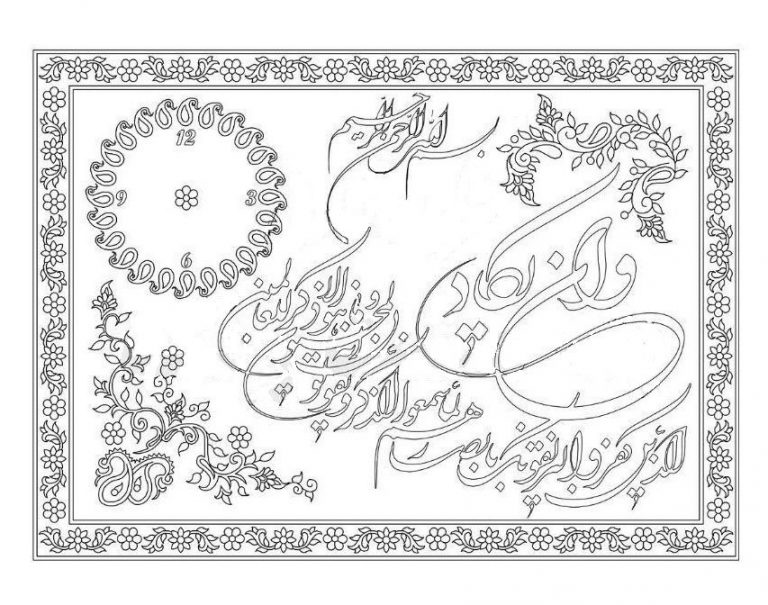 بسم الله الرحمن الرحیم
وان یکاد
الذین کفروا لیزلقونک بابصارهم
لما سمعوا الذکر و یقولون
انه لمجنون
و ما هو الا ذکر للعالمین
12
9 3
6